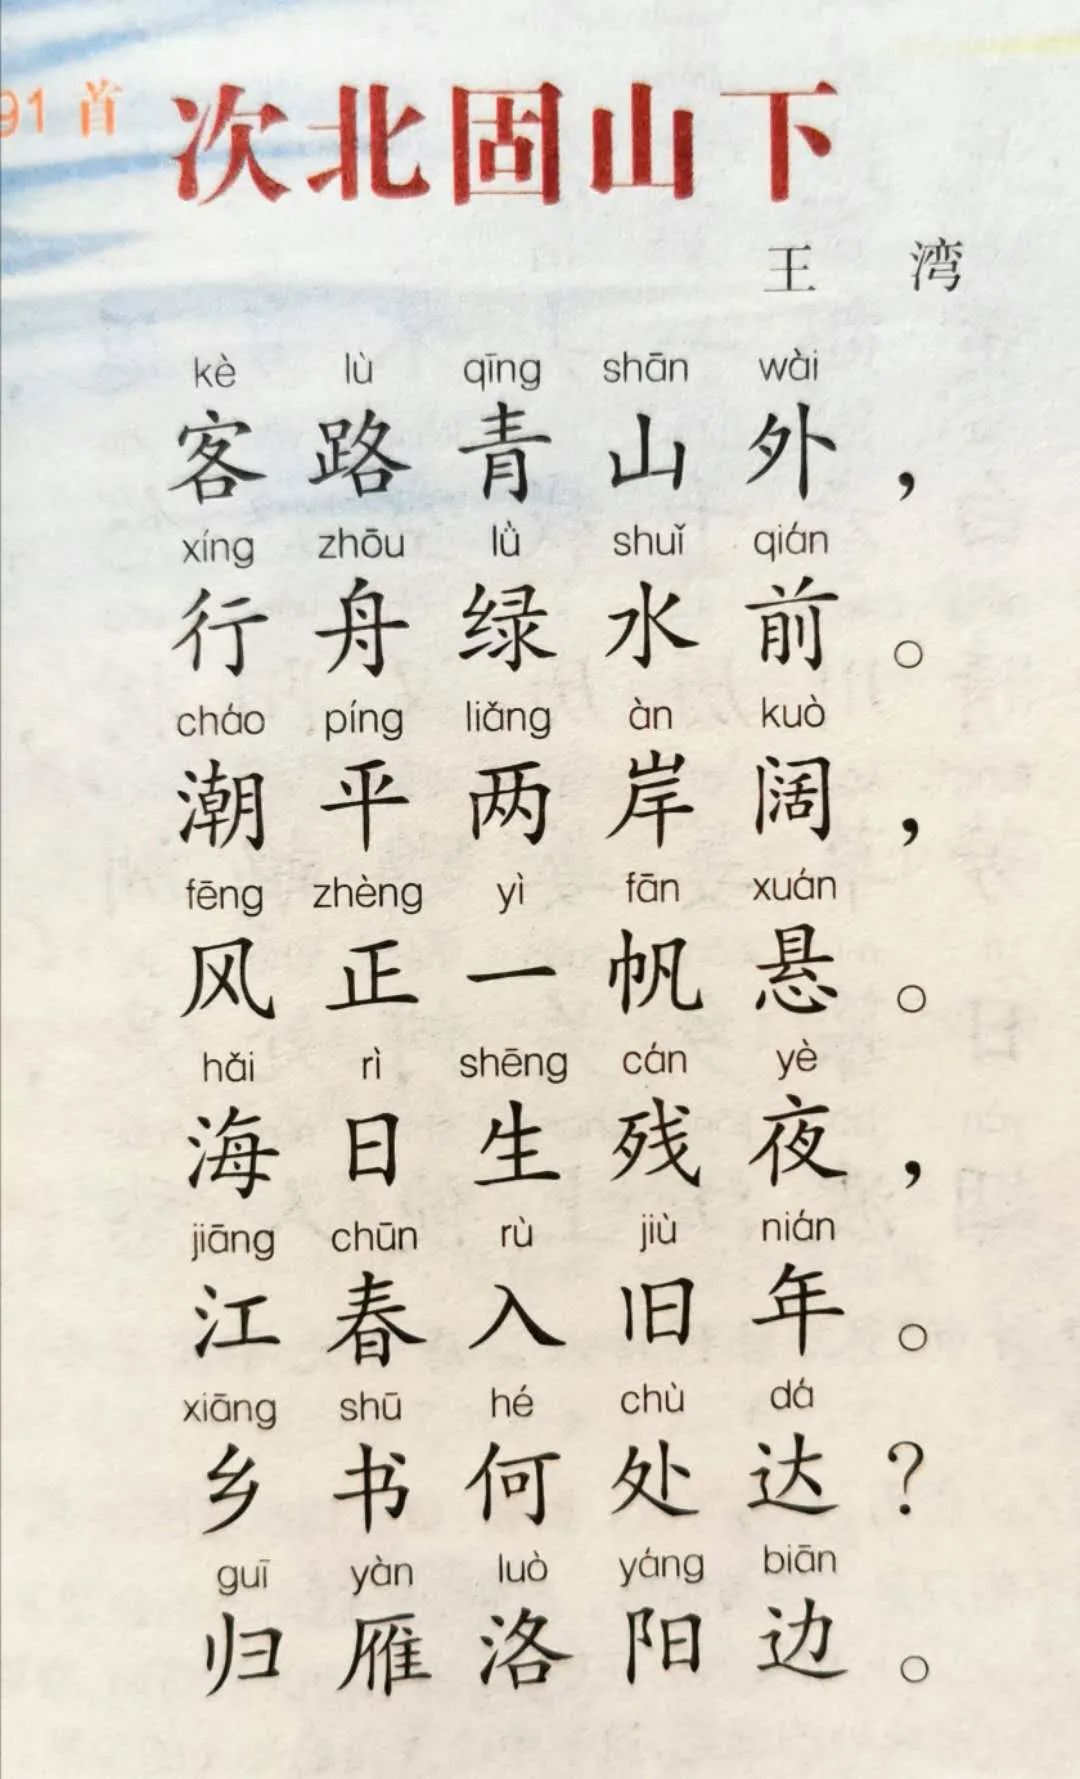 91 首 次北固山下
王 湾
kè lù qīng shān wài
客路青山外，
xíng zhōu lǜ shuǐ qián
行舟绿水前。
cháo píng liǎng àn kuò
潮平两岸阔，
fēng zhèng yì fān xuán
风正一帆悬。
hǎi rì shēng cán yè
海日生残夜，
jiāng chūn rù jiù nián
江春入旧年。
xiāng shū hé chù dá
乡书何处达？
guī yàn luò yáng biān
归雁洛阳边。